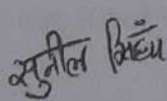 सुनील सिंह